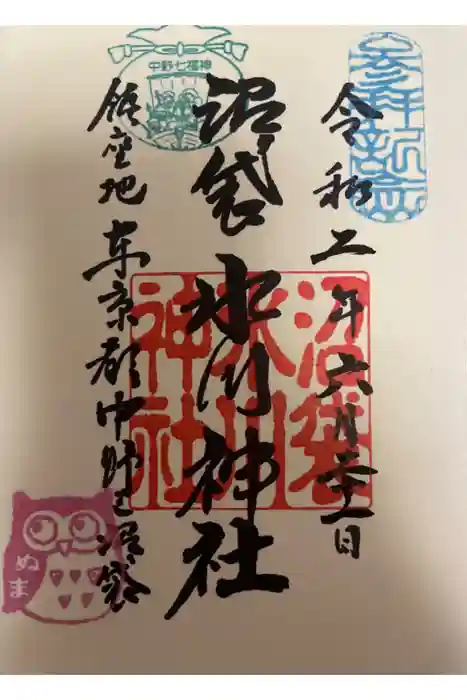 参拝記念
令和二年六月二十一日
沼袋氷川神社
沼袋氷川神社
中野七福神
鎮座地 東京都中野区沼袋
ぬま